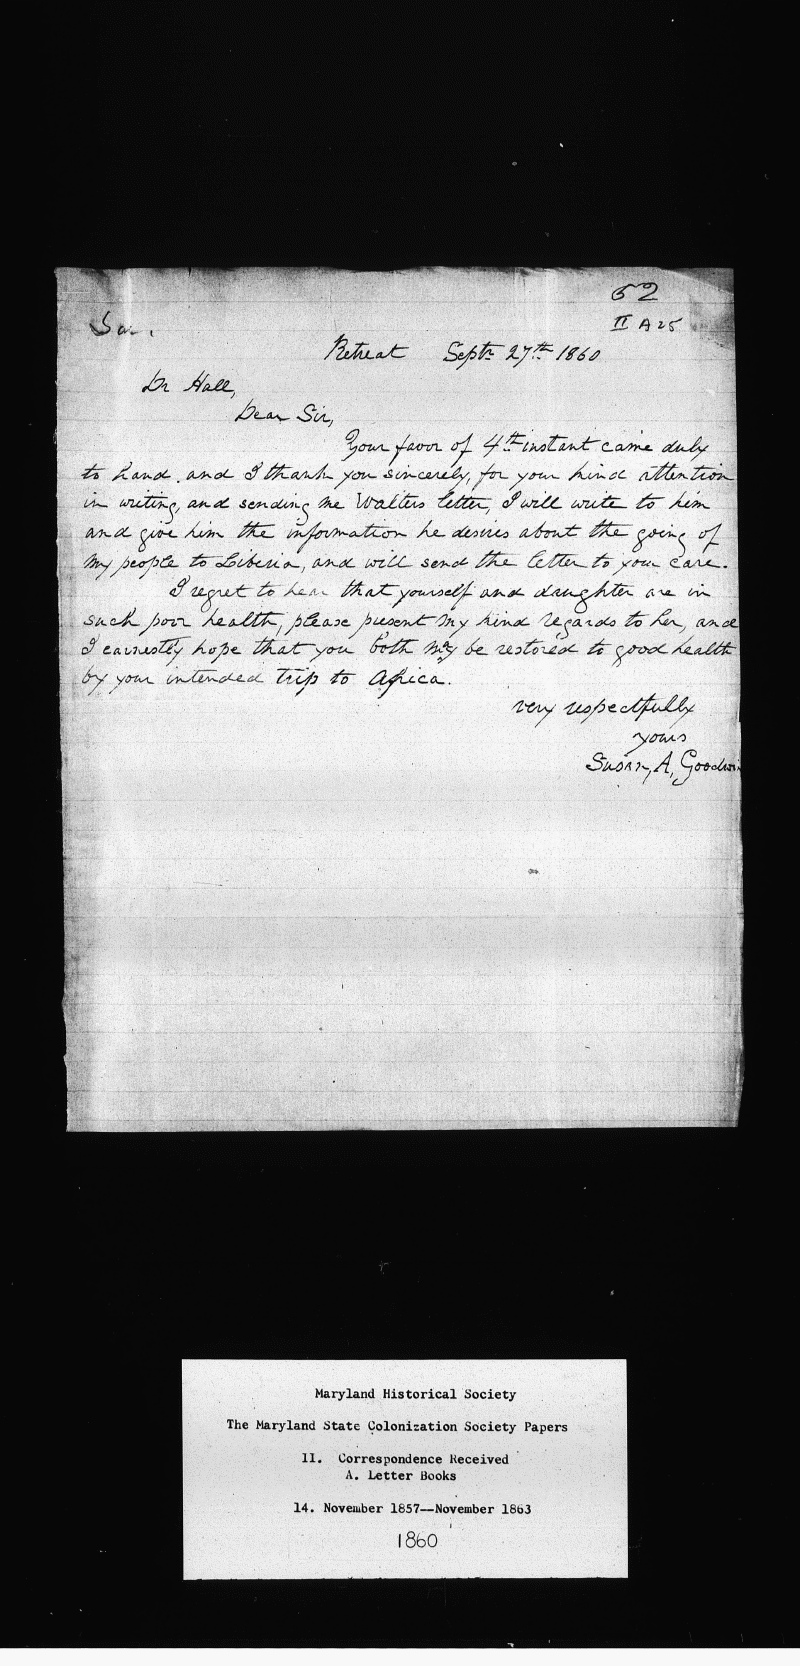 52
II A 25
Retreat Septr 27th 1860
Dr Hall,
Dear Sir,
Your favor of 4th instant came duly
to hand. and I thank you sincerely, for your kind attention
in writing, and sending me Walters letter, I will write to him
and give him the information he desires about the going of
my people to Liberia, and will send the letter to your care.
I regret to hear that yourself and daughter are in
such poor health, please present my kind regards to her, and
I earnestly hope that you both may be restored to good health
by your intended trip to Africa.
very respectfully
yours
Susan, A, Goodwin
Maryland Historical Society
The Maryland State Colonization Society Papers
II. Correspondence Received
A. Letter Books
14. November 1857--November 1863
1860